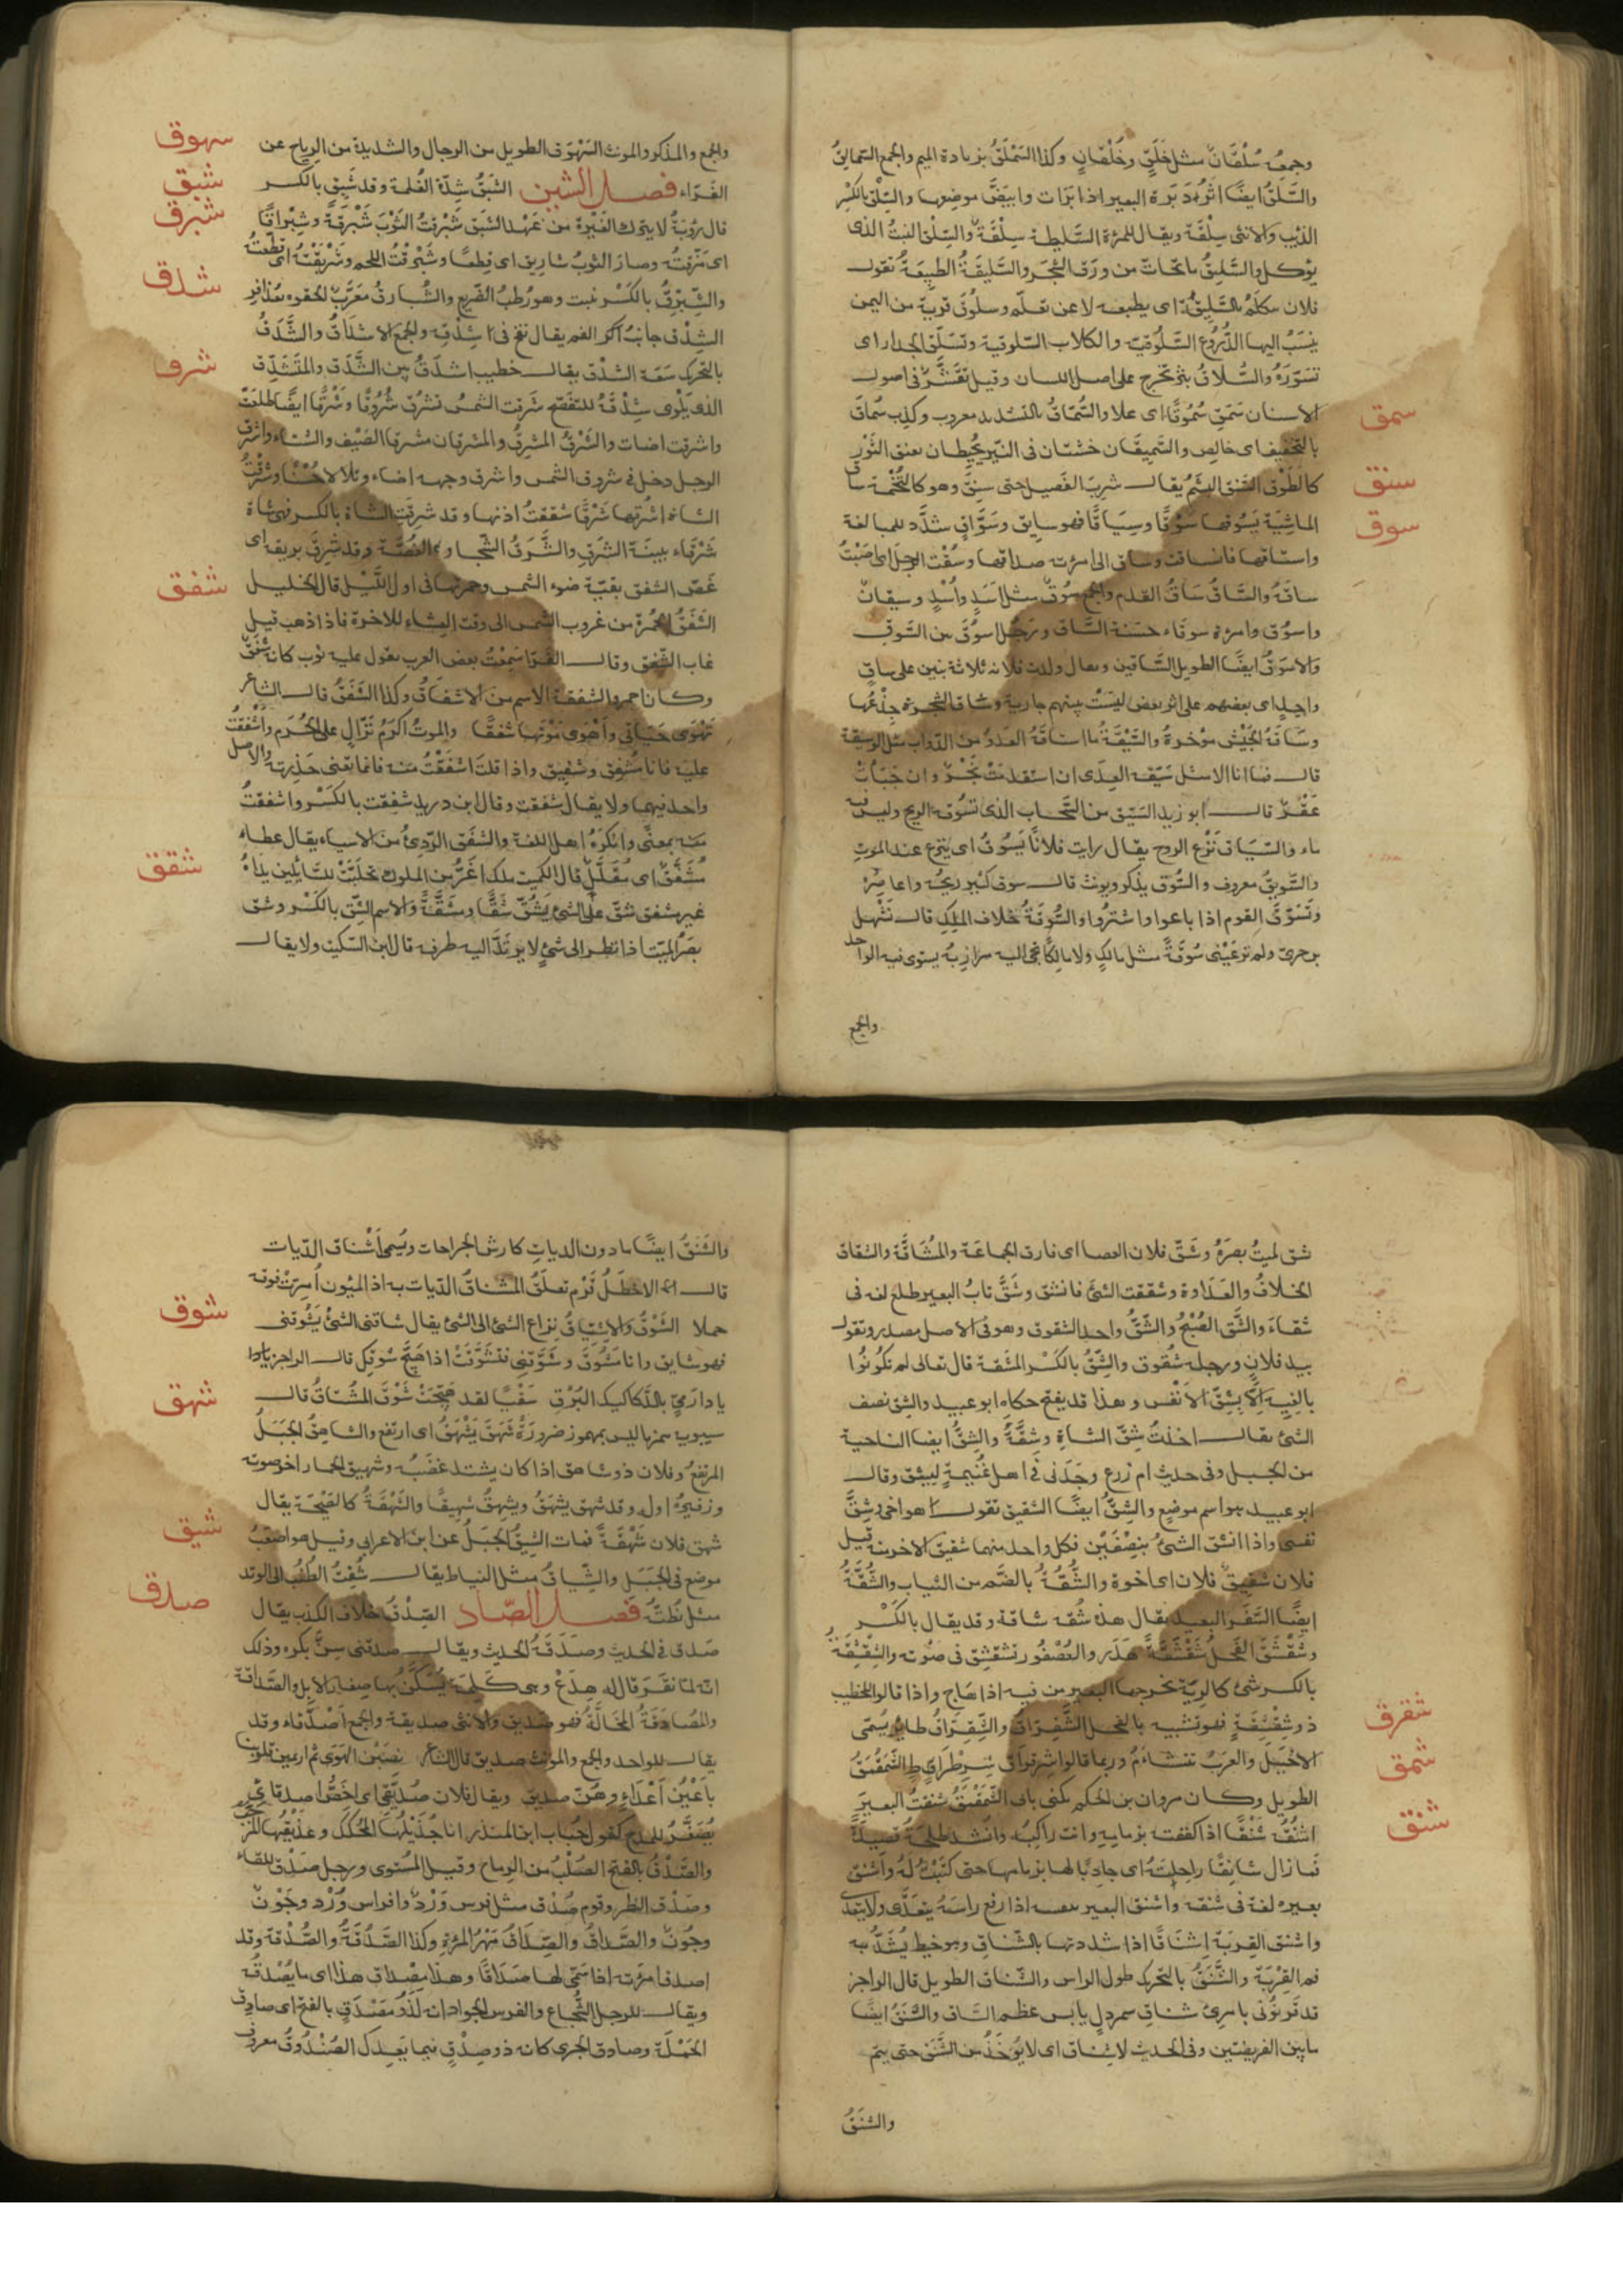 وجمعه سُلْقَانٌ مثل خَلَقٍ وخُلْقَانٍ وكذا السَمْلَقُ بزيادة الميم والجمع السَّمَالِقُ
والسَّلَقُ ايضًا اثر دَبَرة البعير اذا بَرَأت وابيَضَّ موضعها والسِّلْق بالكَسْرِ
الذيب والانثى سِلْقَة ويقال للمرأة السَّليطة سِلْقَةٌ والسِلْق النبتُ الذى
يؤكل والسَّلِيقُ ما تحاتّ من ورَق الشجَر والسَّلِيقَةُ الطبيعَةُ تقول
فلان يتكلم بالسَّلِيقَةِ اى بطبعه لا عن تعلّم وسلُوقُ قرية من اليمن
ينسَبُ اليها الدُّرُوع السَّلُوقيّة والكلاب السّلوقية وتسَلّق الجدار اى
تسَوّرَهُ والسُّلاقُ بثر تخرج على اصل اللسان وقيل تقَشُّرٌ فى اصول
الاسنان سَمَقَ سُمُوقًا اى علا والسُّمّاقُ بالتشديد معروب وكذِب سُمَاق
سمق
بالتخفيف اى خالِص والسَّمِيقَان خشبتان فى النّير يُحيطان بعنق الثَوْرِ
كالطَوْقِ السَّنَق البشَمُ يقال شربَ الفَصيل حتى سنِقَ وهو كالتُخَمة ساق
سنق
الماشِيَة يَسُوقها سَوْقًا وسِيَاقًا فهو سايق وسَوَّاق شدّد للمبالغة
سوق
واستاقها فانساقت وساق الى امرأته صداقها وسُقْت الرجلَ اى اصَبْتُ
ساقَهُ والسَّاقُ ساقُ القدم والجمع سُوقٌ مثل اَسَدٍ واُسْدٍ وسيقانٌ
واسوُق وامرأة سوقاء حسَنة السَّاق ورَجُل اسوَقُ بين السَّوَق
والاسوَقُ ايضًا الطويل السَّاقين ويقال ولدت فلانه ثلاثة بنين على ساقٍ
واحِدٍ اى بعضهم على اثر بعض ليسَتْ بينهم جارية وساق الشجرة جِذْعُها
وسَاقةُ الجَيْش مؤخرهُ والسَّيّقَةُ ما استاقَهُ العدوّ من الدَّواب مثل الوسيقة
قال فما انا الا مثل سَيّقة العِدَى ان استقدَمَتْ نَحْرٌ وان جَبَأتْ
عَقْرٌ قال ابو زيد السَيِّق من السَّحاب الذى تسُوقه الريح وليس فيه
ماء والسّيَاق نَزْع الروح يقال رايت فلانًا يَسُوقُ اى يَنزِع عند الموتِ
والسَّوِيقُ معروف والسُّوق يذكر ويؤنث قال سوق كثير ريحُهُ واعاصِرُهْ
وتَسَوَّقَ القوم اذا باعوا واشترُوا والسُّوقَةُ خلاف المَلِك قال نَهْشَل
بن حرى ولم ترعَيْنى سُوقَةً مثل مالكٍ ولا مالِكًا تجى اليه مرازِبُهْ يستوى فيه الواحد
والجمع
والجمع والمذكر والمونث السَهْوَق الطويل من الرجال والشديدة من الرياح عن
سهوق
الفَرّاء فصل الشين الشَبَقُ شِدّة الغُلمة وقد شَبِقَ بالكسر
شبق
قال رؤبَةُ لا يترك الغَيْرة من عَهْد الشَبَق شَبْرقتُ الثَوْبَ شَبْرَقةً وشِبْراقًا
شبرق
اى مَزّقتُه وصارَ الثوبُ شباريق اى قِطعًا وشَبْرقتُ اللحم وشَرْبَقتُه اى قطعتُه
والشِّبْرِقُ بالكَسْر نبت وهو رُطبُ الضَّرِيع والشُّبارقُ معَرّبٌ الحقوه بعُذَافِرٍ
الشِدْق جانبُ الفم يقال نفخ فى اشِدْقه والجمع الاشداقُ والشَّدَقُ
شدق
بالتحريك سَعَة الشدْق يقال خطيب اشدَقُ بين الشَّدَق والمُتشَدِّق
الذى يَلْوِى شِدْقَهُ للتفَصّح شَرَقت الشمسُ تشرُق شُرُوقًا وشَرْقًا ايضًا طلعَت
شرق
واشرقت اضاءت والشَرْقُ المشرِقُ والمشرقان مشرقا الصَيْف والشتاء واشرق
الرجل دخل فى شروق الشمس واشرق وجهه اضاء وتلألأ حُسْنًا وشَرَقْتُ
الشاة اشرُقها شَرْقًا شققتُ اذنها وقد شرِقَت الشاة بالكسر فهى شاة
شَرْقاء بينة الشرَقِ والشَّرَقُ الشجا والغُصَّة وقد شَرِقَ بريقه اى
غصّ الشفق بقيّة ضوء الشمس وحمرتها فى اول الليل قال الخليل
شفق
الشَفَقُ الحُمرَة من غروب الشمس الى وقت العِشاء الآخرة فاذا ذهب قيل
غاب الشَّفَق وقال الفَرّا سَمِعْتُ بعض العرب يقول عليه ثوب كانه شَفَقٌ
وكان احمر والشفقة الاسم من الاشفاق وكذا الشَفَقُ قال الشاعر
تَهْوَى حَيَاتى وأَهْوَى مَوْتَها شَفَقًا والموتُ اكرَمُ نَزّالٍ على الحُرَمِ واشفَقتُ
عليه فانا مُشفِق وشفيق واذا قلتَ اشفَقْتُ منه فانما تعنى حَذِرته والاصل
واحد فيهما ولا يقال شفَقت وقال ابن دريد شفِقت بالكَسْر واشفقتُ
منه بمعنًى وانكرَهُ اهل اللغة والشفَق الرّدِىُ من الاشياء يقال عطاء
مُشَفّقٌ اى مُقَلَّلٌ قال الكميت ملك اغرُّ من الملوك تحلبَتْ للسَّايلين يداهُ
غير مشفق شَقَّ علىَّ الشئُ يَشُقُّ شَقًّا ومشَقَّةً والاسم الشِّق بالكَسْر وشق
شقق
بصَرُ الميّت اذا نظر الى شئٍ لا يرتدّ اليه طرفه قال ابن السّكيت ولا يقال
شق الميتُ بصرَهُ وشَقّ فلان العصا اى فارق الجماعَة والمُشاقّة والشقاق
الخلافُ والعَدَاوة وشققت الشئ فانشق وشَقَّ نابُ البعير طلع لغه فى
شقاء والشَّق الصُبْحُ والشَّقُّ واحد الشقوق وهو فى الاصل مصدر وتقول
بيد فلانٍ وبرجله شُقوق والشِّقُّ بالكَسْر المشَقة قال تعالى لم تكونُوا
بالِغيهِ اِلَّا بِشِقِّ الاَنْفُس وهذا قد يفتح حكاه ابو عبيد والشِق نصف
الشئ يقال اخذتُ شِقّ الشاةِ وشِقَّةَ والشِقُّ ايضا الناحية
من الجبل وفى حديث ام زرع وجَدَنى فى اهل غُنَيمةٍ بِشق وقال
ابو عبيد هو اسم موضع والشِقُّ ايضًا الشقيق تقول هو اخى وشِقُّ
نفسى واذا انشق الشئُ بنِصْفَيْن فكل واحد منهما شقيق الآخر ومنه قيل
فلان شقِيقُ فلان اى اخوهُ والشُّقّةُ بالضَّم من الثياب والشُّقَّةُ
ايضًا السَّفَر البعيد يقال هذه شُقة شاقة وقد يقال بالكَسْر
وشَقْشَقَ الفَحلُ شَقْشَقَةً هَدَر والعُصْفُور تشَقشِق فى صَوْته والشِقْشِقَةُ
بالكسر شئ كالرِّئة تخرجها البعير من فيه اذا هَاج واذا قالوا للخطيب
ذو شِقْشِقةٍ فهو تشبيه بالفحل الشَّقِرَّاقُ والشِّقِرّاقُ طاير يُسَمّى
شقرق
الاخْيَلَ والعرَبُ تتشاءَمُ به وربما قالوا شرِقراق مثل سِرِطْرَاطٍ الشَّمَقْمَقُ
شمق
الطويل وكان مروان بن الحكم يكنى بابى الشَّمَقْمَق شنَقتُ البعيرَ
اشنُقُه شَنْقًا اذا كففته بزمامِهِ وانت راكبُه وانشد طلحَةُ قصيدَةً
شنق
فما زال شانِقًا راحِلتَهُ اى جاذِبًا لها بزمامها حتى كُتِبَتْ لهُ واشنق
بعيره لغة فى شنقه واشنق البعير بنفسه اذا رفع راسَهُ يتعدّى ولا يتعدى
واشنق القِربَة اِشنَاقًا اذا شدّدتها بالشِّناق وهو خيط يُشدُّ به
فم القِرْبة والشَّنَقُ بالتحرّك طول الراس والشِّناق الطويل قال الراجز
قد قرنوُنى بامرئٍ شناقِ سمردلٍ يابس عظم السَّاق والشَّنَقُ ايضًا
ما بين الفريضتين وفى الحديث لا شِناق اى لا يُؤخَذُ من الشَّنَق حتى يتم
والشَنَقُ
والشَّنَقُ ايضًا ما دون الديات كارش الجراحات ويُسمى اَشْناق الدّيات
قال الاخطَلُ قَرْمٌ تعلّقُ اشناقُ الدّيات به اذا المِيُون اُمِرّتْ فوقه
حملا الشَوْقُ والاشتِيَاقُ نِزاع الشئ الى الشئ يقال شاقنى الشئُ يَشُوقنى
شوق
فهو شايق وانا مَشُوقٌ وشَوّقنى فتشَوّقتُ اذا هَيّجَ شوقَك قال الراجز
يا دارَ مَىّ بالدَّكاديك البُرَقِ سَقْيًا لقد هَيّجْتِ شَوْقَ المُشتاقُ قال
سيبويه همز ما ليس بمهموز ضرورَةً شَهَقَ يَشْهَقُ اى ارتفع والشاهِقُ الجَبَلُ
شهق
المرتفعُ وفلان ذو شاهق اذا كان يشتد غضَبُه وشهيق الحمار اخر صوته
وزفيرُه اوله وقد شهق يشهَقُ ويشهِقُ شهِيقًا والشَّهْقَةُ كالصَّيْحَة يقال
شهق فلان شَهْقَةً فمات الشِيقُ الجَبَلُ عن ابن الاعرابى وقيل هو اصعَبُ
شيق
موضع فى الجَبَل والشِّيَاقُ مثل النياط يقال شُقتُ الطُنُبَ الى الوتد
مثل نُطتُه فصل الصّاد الصِّدْقُ خلاف الكذب يقال
صدق
صَدق فى الحديث وصدَقَهُ الحديث ويقال صدقنى سِنَّ بكره وذلك
انّه لما نفَر قال له هِدَعْ وهى كلمة يُسَكّنُ بها صغار الابل والصَّداقة
والمُصَادَقةُ المُخَالّةُ فهو صَديق والانثى صديقة والجمع اَصْدِقاء وقد
يقال للواحد والجمع والمونث صديق قال الشاعر نصَبْن الهَوَى ثم ارتمين قلوبنا
باَعْيُنِ اَعْدَاءٍ وهُنّ صديق ويقال فلان صُدَيّقى اى اخَصُّ اصدقائى
يُصَغّر للمدح كقول حُبَاب ابن المنذر انا جُذَيْلُها المُحَكَّك وعُذَيقُها المرَجّب
والصَّدْقُ بالفتح الصُلْبُ من الرماح وقيل المُستوى ورجل صَدْق اللقاء
وصَدْق النظر وقوم صُدْق مثل فرس وَرْدٌ وافراس وُرْد وجَوْنٌ
وجُونٌ والصَّداقُ والصِّدَاقُ مَهْر المرأة وكذا الصَّدُقَةُ والصُّدْقة وقد
اصدق امرأته اذا سَمّى لها صَدَاقًا وهذا مِصْدَاق هذا اى ما يُصْدِقُه
ويقال للرجل الشُّجاع والفرس الجواد انه لذُو مَصْدَقٍ بالفتح اى صادِق
الحَمْلَة وصادق الجرى كانه ذو صِدْقٍ فيما يَعِدك الصُنْدُوقُ معروف